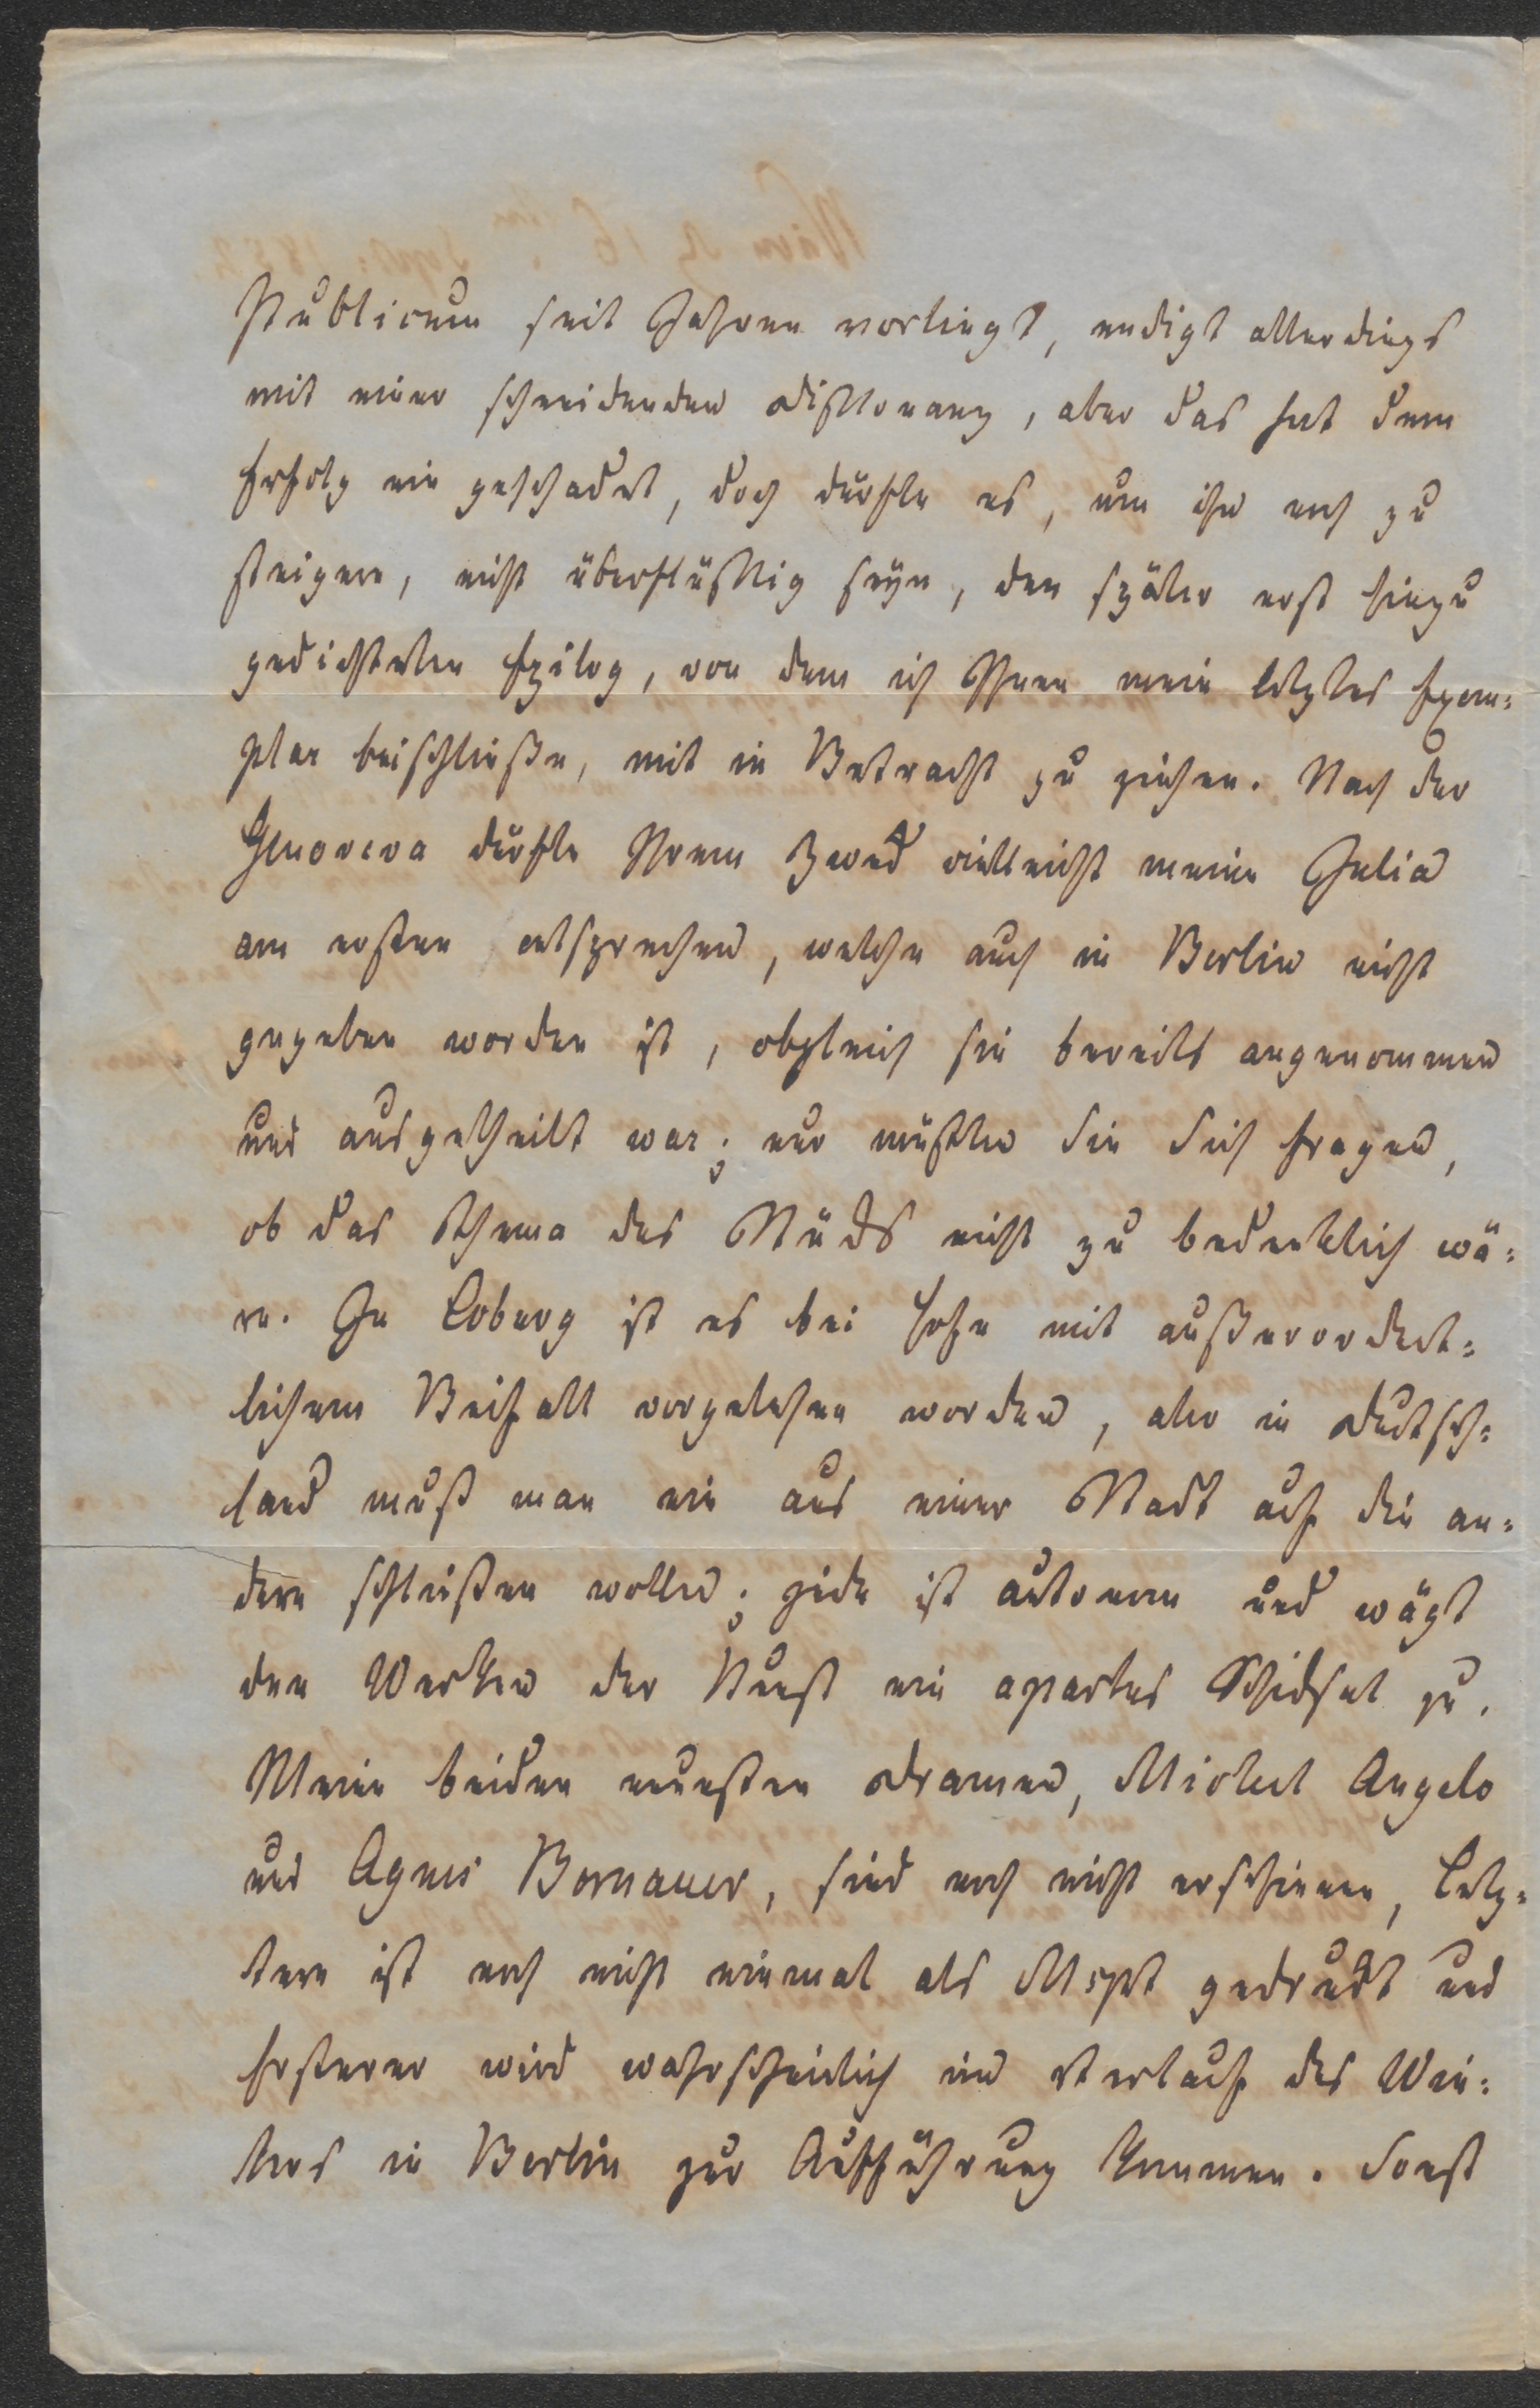 Publicum seit Jahren vorliegt, endigt allerdings
mit einer schneidenden Dissonanz, aber das hat dem
Erfolg nie geschadet, doch dürfte es, um ihn noch zu
steigern, nicht überflüssig seyn, den später erst hinzu
gedichteten Epilog, von dem ich Ihnen mein letztes Exem-
plar beischließe, mit in Betracht zu ziehen. Nach der
Genoveva dürfte Ihrem Zweck vielleicht meine Julia
am ersten entsprechen, welche auch in Berlin nicht
gegeben worden ist, obgleich sie bereits angenommen
und ausgetheilt war; nur müßten Sie Sich fragen,
ob das Thema des Stücks nicht zu bedenklich wä-
re. In Coburg ist es bei Hofe mit außerordent-
lichem Beifall vorgelesen worden, aber in Deutsch-
land muß man nie aus einer Stadt auf die an-
dere schließen wollen; jede ist autonom und wägt
den Werken der Kunst ein apartes Schicksal zu.
Meine beiden neuesten Dramen, Michel Angelo
und Agnes Bernauer, sind noch nicht erschienen, Letz-
tere ist noch nicht einmal als Mspt gedruckt und
Ersterer wird wahrscheinlich im Verlauf des Win-
ters in Berlin zur Aufführung kommen. Sonst